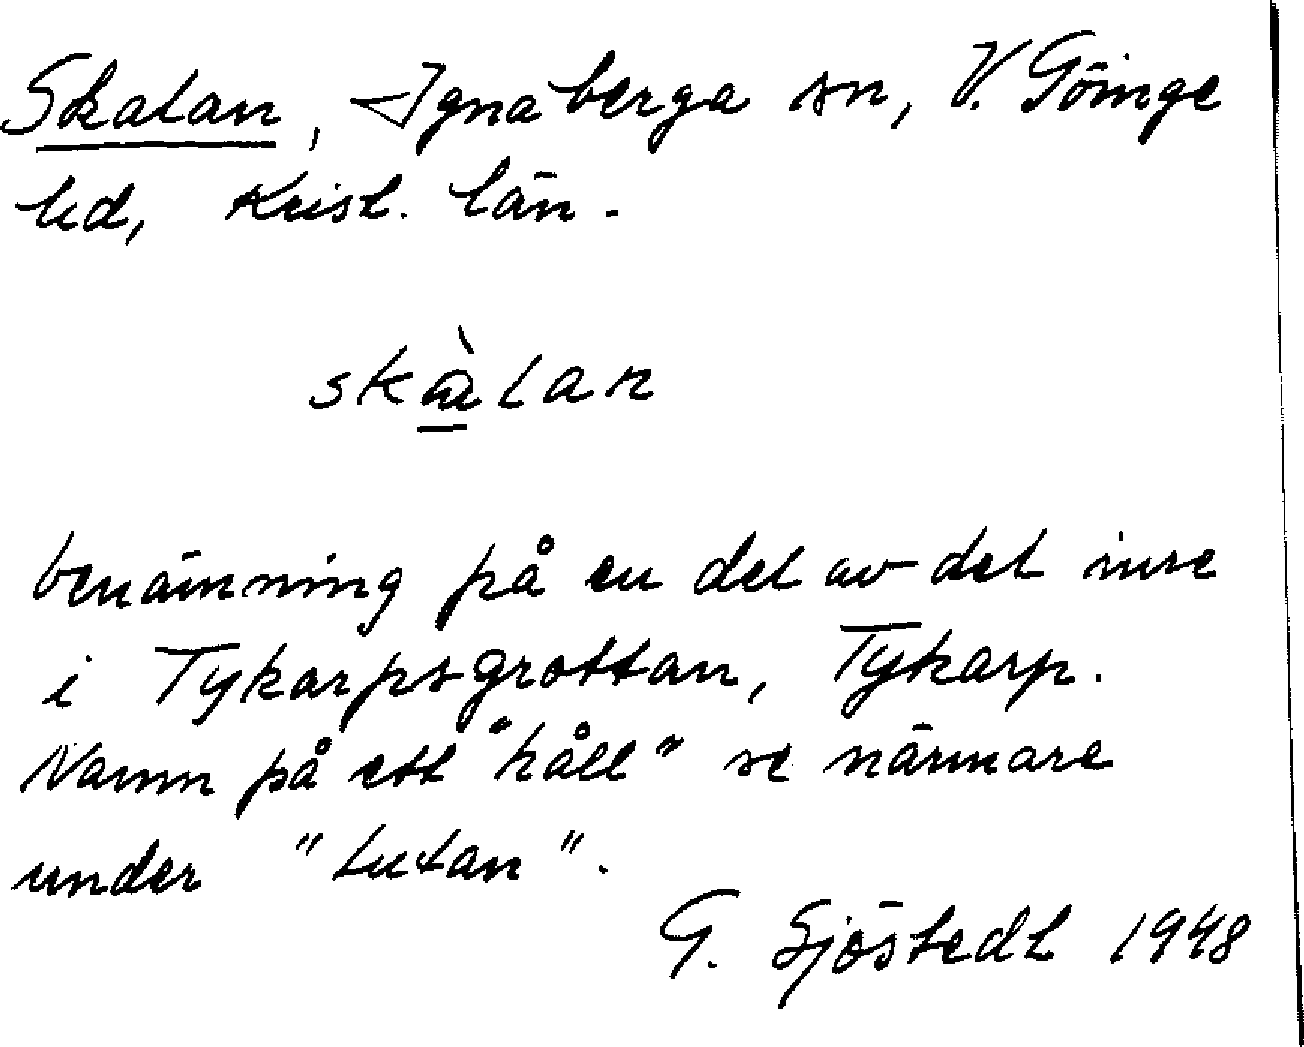 Skatan, Ignaberga sn, V. Göinge
hd, Krist. län.
skàtan
benämning på en del av det inre
i Tykarpsgrottan, Tykarp.
Namn på ett "håll" se närmare
under "Lutan".
G. Sjöstedt 1948